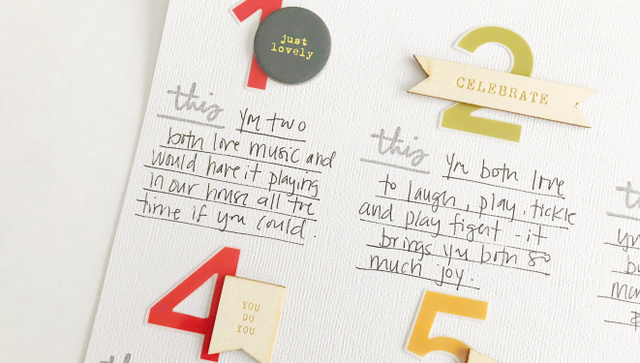 1
just
lovely
this you two
both love music and
would have it playing
in our house all the
time if you could.
2
CELEBRATE
this you both love
to laugh, play, tickle
and play fight - it
brings you both so
much joy.
4
YOU
DO
YOU
5